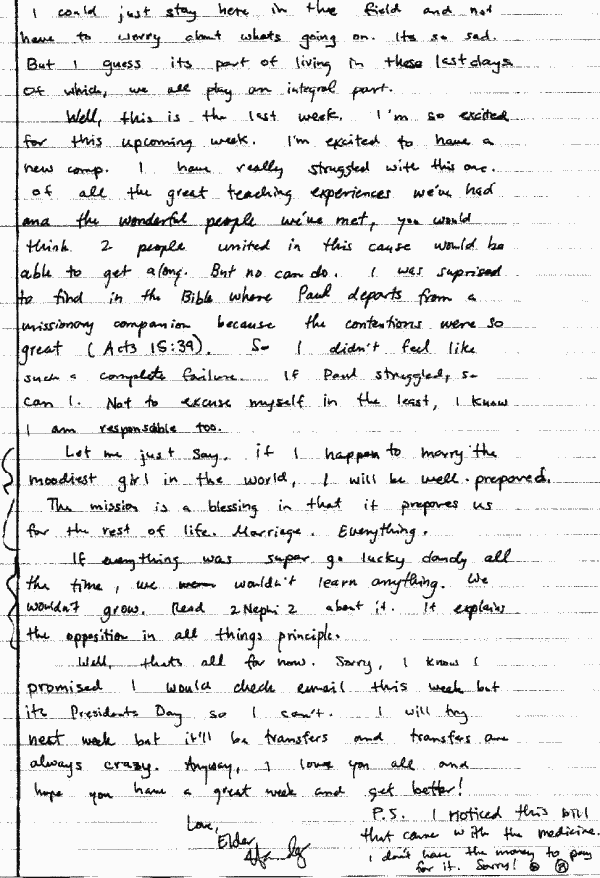 I could just stay here in the field and not
have to worry about whats going on. Its so sad.
But I guess its part of living in these last days
of which, we all play an integral part.
Well, this is the last week. I'm so excited
for this upcoming week. I'm excited to have a
new comp. I have really struggled with this one.
of all the great teaching experiences we've had
and the wonderful people we've met, you would
think 2 people united in this cause would be
able to get along. But no can do. I was suprised
to find in the Bible where Paul departs from a
missionary companion because the contentions were so
great (Acts 15:39). So I didn't feel like
such a complete failure. If Paul struggled, so
can I. Not to excuse myself in the least, I know
I am responsible too.
Let me just say. if I happen to marry the
moodiest girl in the world, I will be well-prepared.
The mission is a blessing in that it prepares us
for the rest of life. Marriage. Everything.
If everything was super go lucky dandy all
the time, we wouldn't learn anything. We
wouldn't grow. Read 2 Nephi 2 about it. It explains
the opposition in all things principle.
Well, thats all for now. Sorry, I know I
promised I would check email this week but
its Presidents Day so I can't. I will try
next week but it'll be transfers and transfers are
always crazy. Anyway, I love you all and
hope you have a great week and get better!
Love,
Elder
P.S. I noticed this bill
that came with the medicine.
I don't have the money to pay
for it. Sorry!